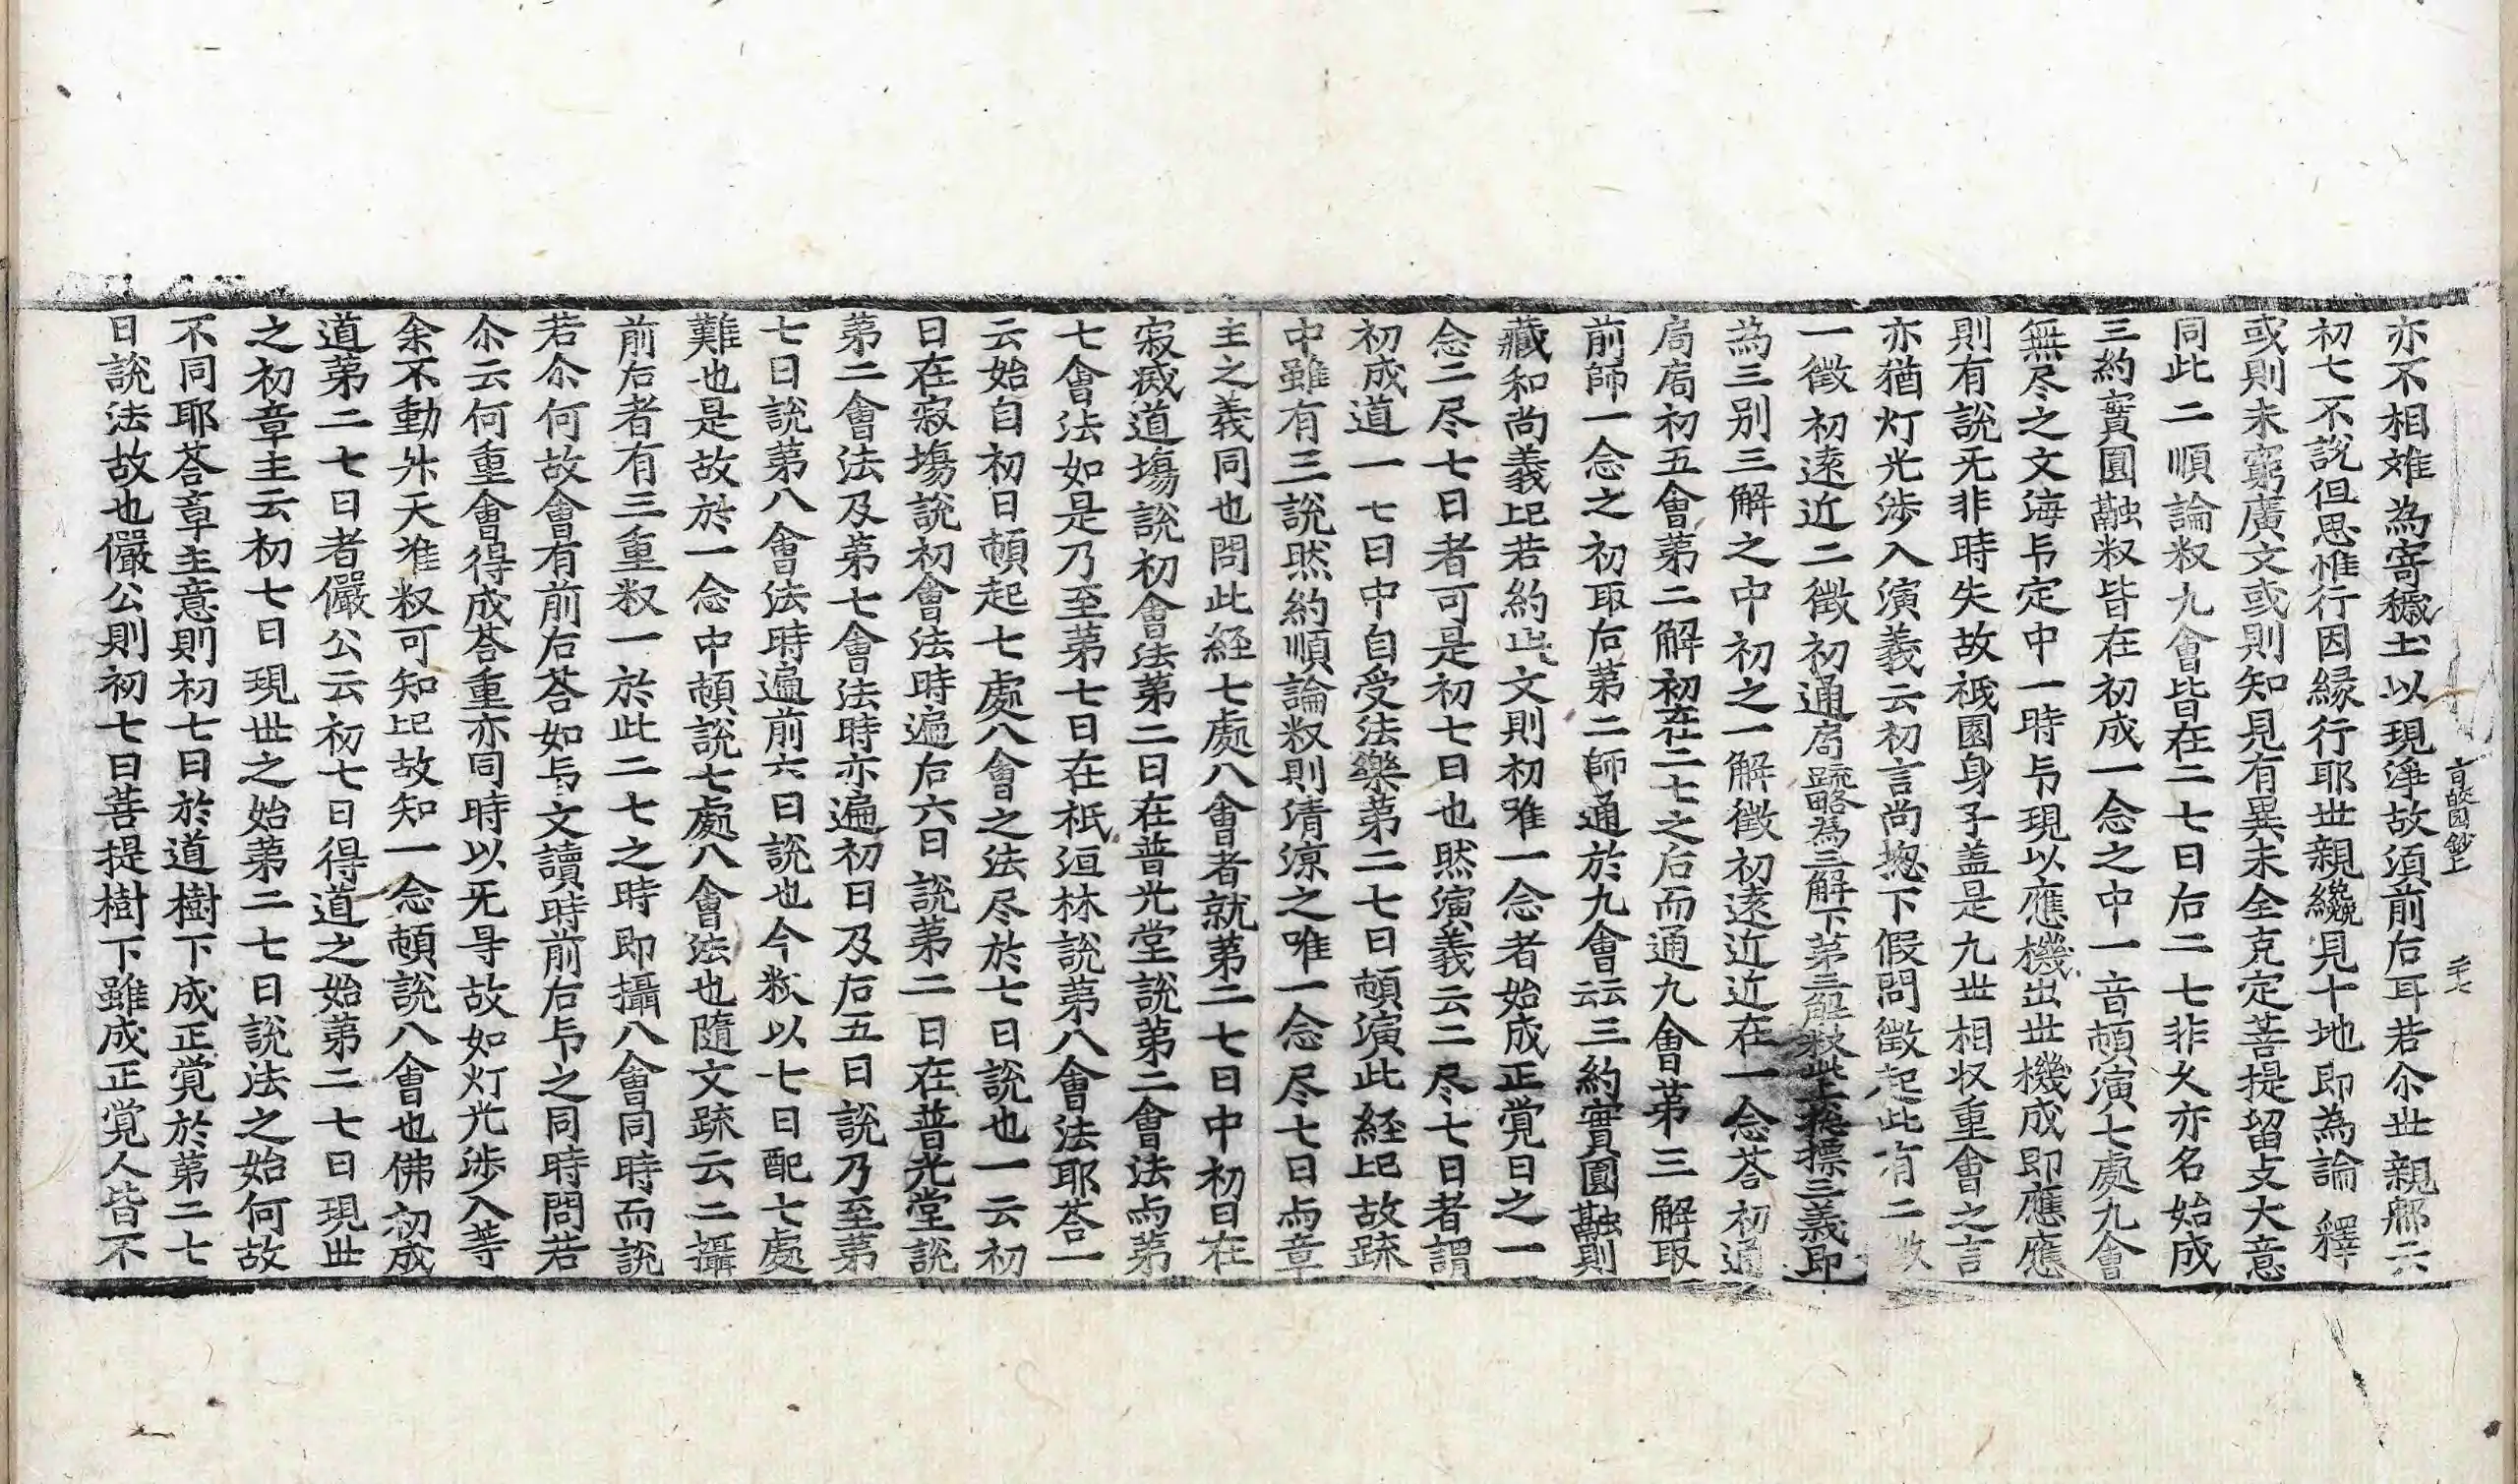 亦不相難為寄穢土以現淨故須前后耳若尒世親那云
初七不說但思惟行因緣行耶世親纔見十地即為論釋
或則未窮廣文或則知見有異未全克定菩提留支大意
同此二順論叙九會皆在二七日右二七非久亦名始成
三約實圓融叙皆在初成一念之中一音頓演七處九會
無尽之文海印定中一時印現以應機出世機成即應應
則有說无非時失故祇園身子盖是九世相収重會之言
亦猶灯光涉入演義云初言尚揔下假問徵起此有二
一徵初遠近二徵初通局疏略為三解下第三解叙此上揔標三義即
為三別三解之中初之一解徵初遠近近在一念荅初通
局局初五會第二解初在二七之后而通九會第三解取
前師一念之初取右第二師通於九會云三約實圓融則
藏和尚義比若約此文則初唯一念者始成正覚日之一
念二尽七日者可是初七日也然演義云二尽七日者謂
初成道一七日中自受法樂第二七日頓演此経比故疏
中雖有三說然約順論叙則清涼之唯一念尽七日与章
主之義同也問此経七處八會者就第二七日中初日在
寂滅道場說初會法第二日在普光堂說第二會法与第
七會法如是乃至第七日在祇洹林說第八會法耶荅一
云始自初日頓起七處八會之法尽於七日說也一云初
日在寂場說初會法時遍右六日說第二日在普光堂說
第二會法及第七會法時亦遍初日及右五日說乃至第
七日說第八會法時遍前六日說也今叙以七日配七處
難也是故於一念中頓說七處八會法也隨文疏云二攝
前右者有三重叙一於此二七之時即攝八會同時而說
若尒何故會有前右荅如印文讀時前右印之同時問若
尒云何重會得成荅重亦同時以无㝵故如灯光涉入等
余不動升天准叙可知比故知一念頓說八會也佛初成
道第二七日者儼公云初七日得道之始第二七日現世
之初章主云初七日現世之始第二七日說法之始何故
不同耶荅章主意則初七日於道樹下成正覚於第二七
日說法故也儼公則初七日菩提樹下雖成正覚人皆不